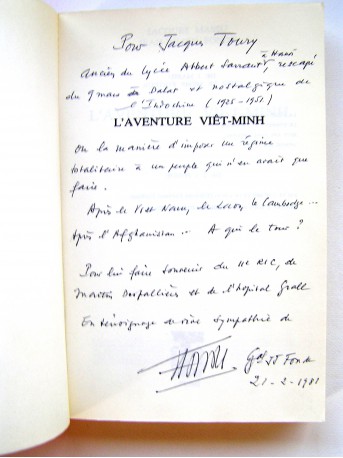 Pour Jacques Toury
Ancien du Lycée Albert Sarraut à Hanoï, rescapé
du 9 mars à Dalat et nostalgique de
l'Indochine (1925-1951)
L'AVENTURE VIÊT-MINH
ou la manière d'imposer un régime
totalitaire à un peuple qui n'en avait que
faire.
Après le Viet Nam, le Laos, le Cambodge...
Après l'Afghanistan... A qui le tour ?
Pour lui faire souvenir du 11e RIC, de
Martin des Pallières et de l'hôpital Grall
En témoignage de vive sympathie de
Gal JJ Fonde
21-2-1981